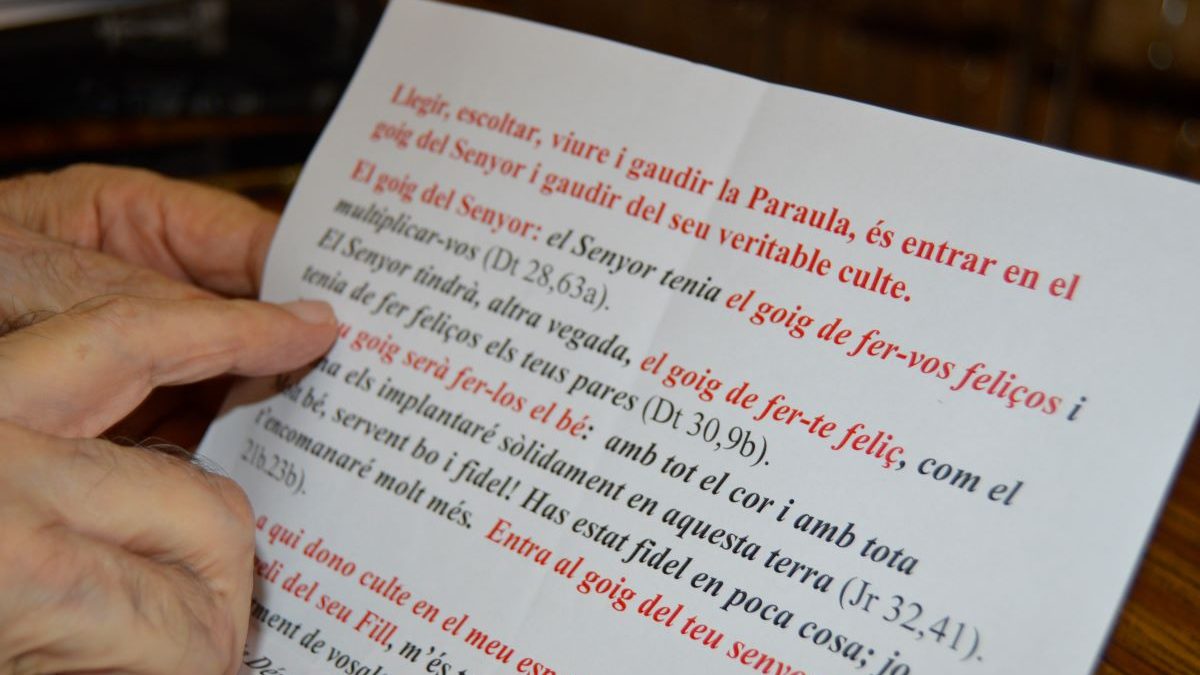 Llegir, escoltar, viure i gaudir la Paraula, és entrar en el
goig del Senyor i gaudir del seu veritable culte.
El goig del Senyor: el Senyor tenia el goig de fer-vos feliços i
multiplicar-vos (Dt 28,63a).
El Senyor tindrà, altra vegada, el goig de fer-te feliç, com el
tenia de fer feliços els teus pares (Dt 30,9b).
goig serà fer-los el bé: amb tot el cor i amb tota
els implantaré sòlidament en aquesta terra (Jr 32,41).
Molt bé, servent bo i fidel! Has estat fidel en poca cosa; jo
t'encomanaré molt més. Entra al goig del teu
21b.23b).
a qui dono culte en el meu
del seu Fill, m'és
de